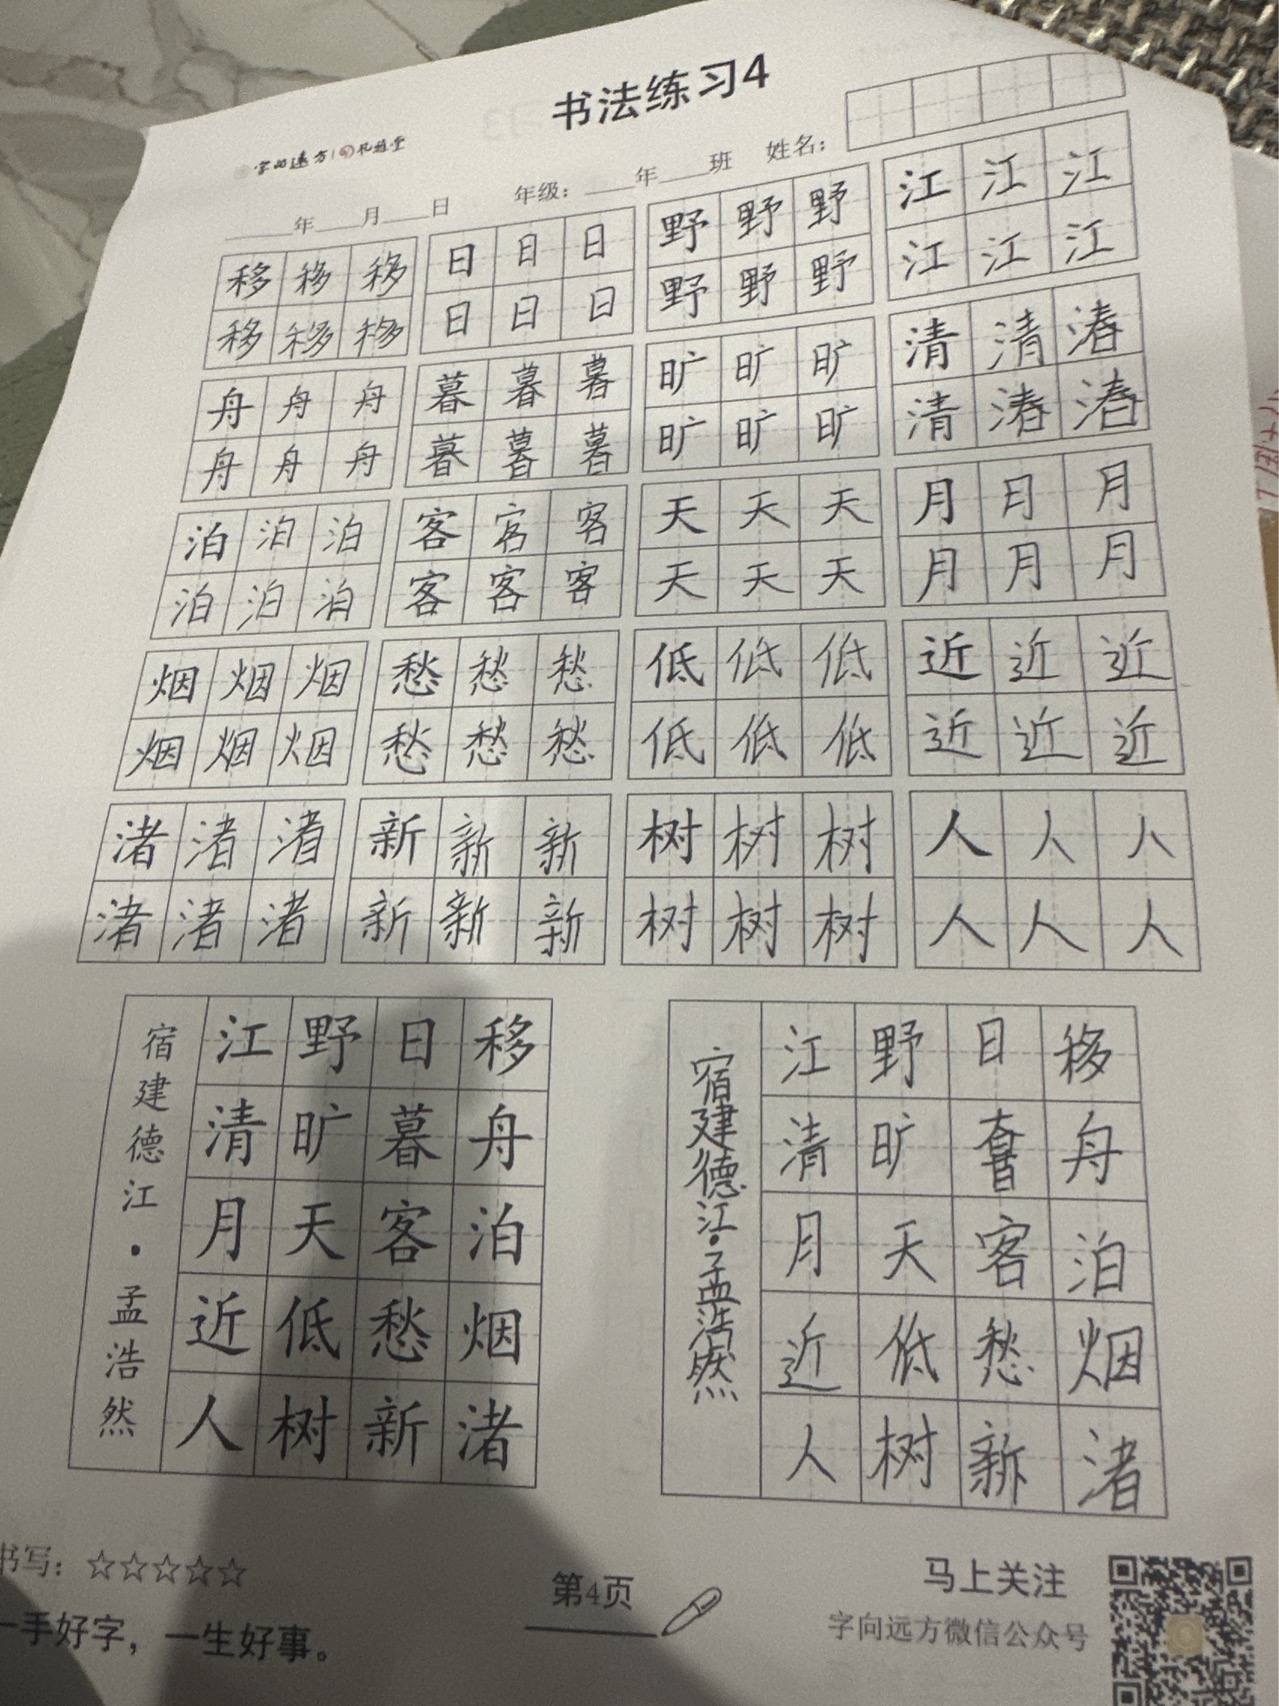 书法练习4
字向远方
年 月 日 年级： 年 班 姓名：
移移移 日日日 野野野 江江江
移移移 日日日 野野野 江江江
舟舟舟 暮暮暮 旷旷旷 清清
舟舟舟 暮暮暮 旷旷旷 清
泊泊泊 客客客 天天天 月月月
泊泊泊 客客客 天天天 月月月
烟烟烟 愁愁愁 低低低 近近近
烟烟烟 愁愁愁 低低低 近近近
渚渚渚 新新新 树树树 人人人
渚渚渚 新新新 树树树 人人人
移舟泊烟渚
日暮客愁新
野旷天低树
江清月近人
宿建德江·孟浩然
移舟泊烟渚
日客愁新
野旷天低树
江清月近人
宿建德江·孟浩然
书写：☆☆☆☆☆
一手好字，一生好事。
第4页
马上关注
字向远方微信公众号